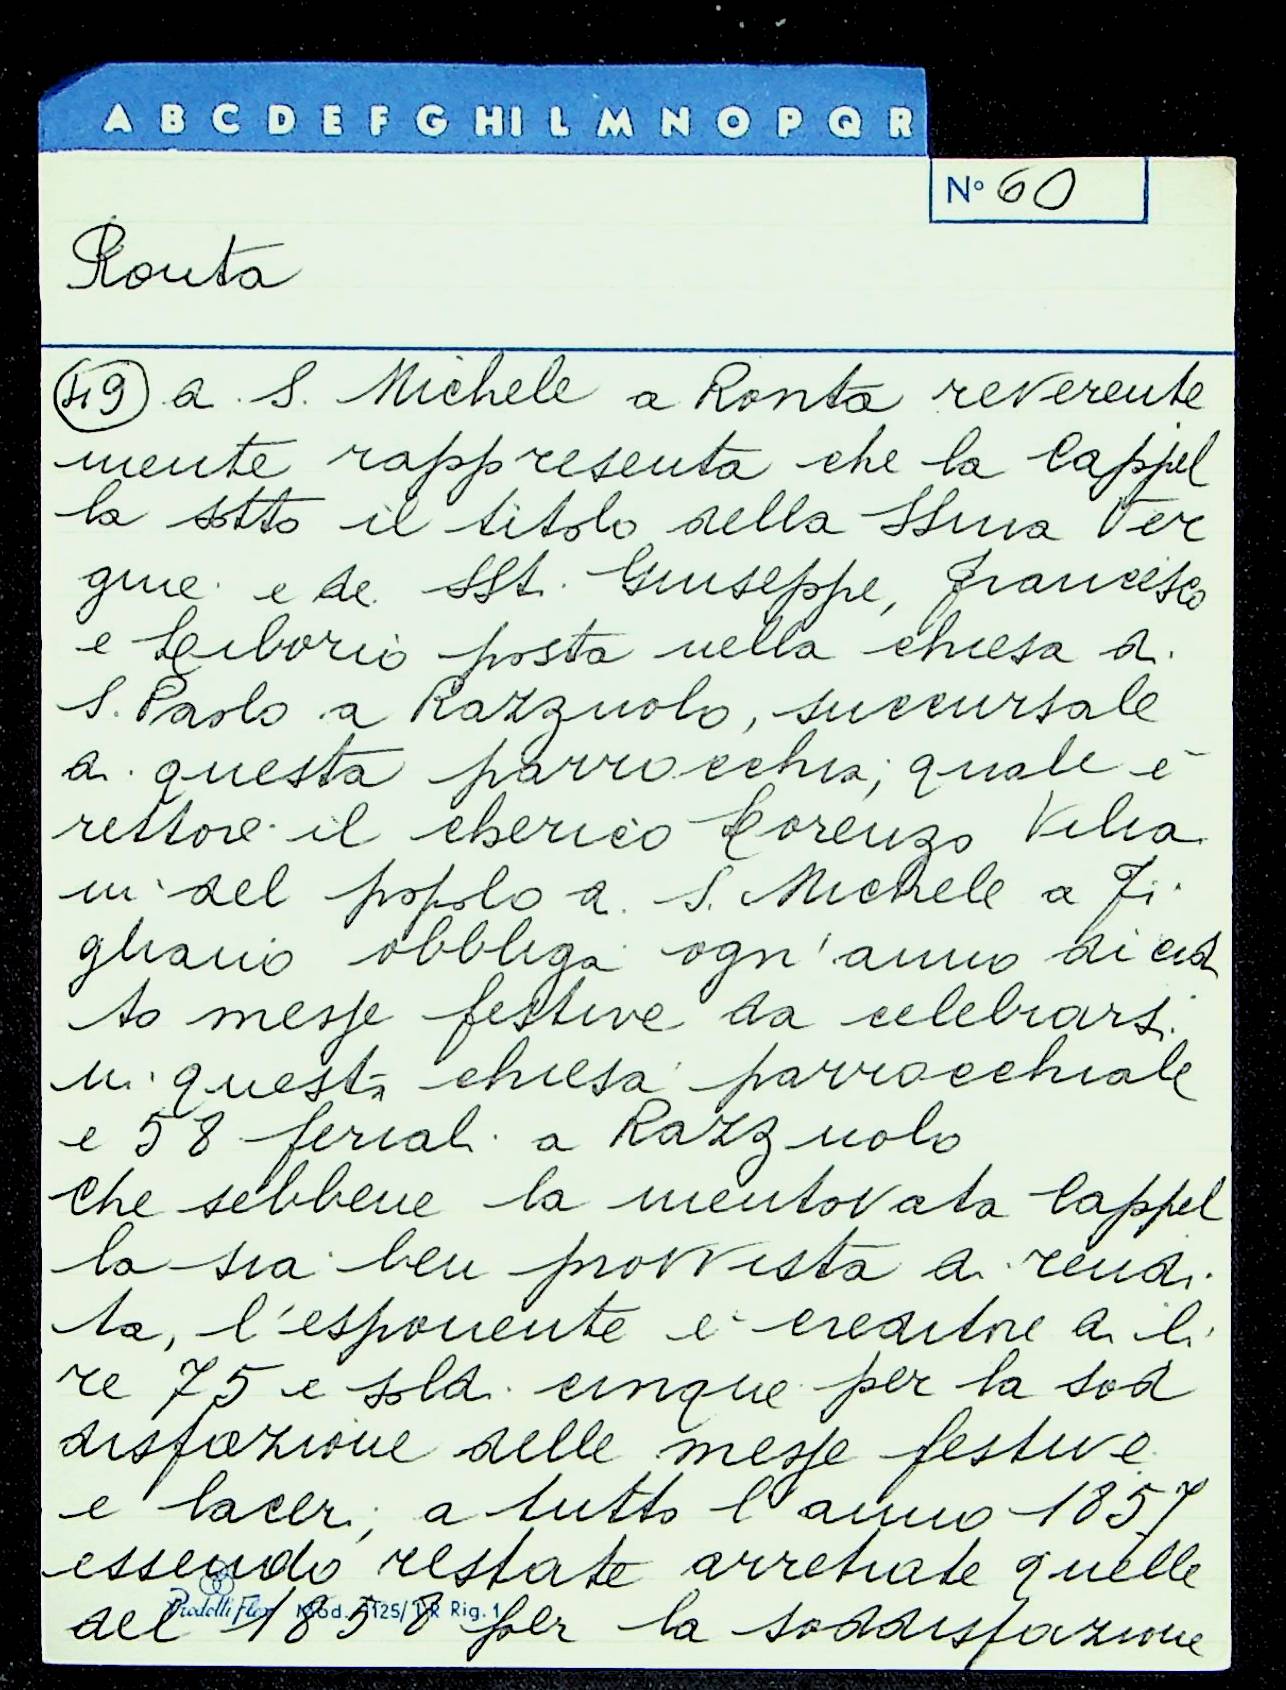 A B C D E F G HI L M N O P Q R
N° 60
Ronta
49 a S. Michele a Ronta reverente
mente rappresenta che la Cappel
la sotto il titolo della SSma Ver
gine e de SSti. Giuseppe, Francesco
e Liborio posta nella chiesa di
S. Paolo a Razzuolo, succursale
di questa parrocchia, quale è
rettore il cherico Lorenzo Villa
ni del popolo di S. Michele a Fi
gliano obbliga ogn'anno di
to messe festive da celebrarsi
in questa chiesa parrocchiale
e 58 feriali a Razzuolo
che sebbene la mentovata Cappel
la sia ben provvista di rendi
ta, l'esponente è creditore di li
re 75 e soldi cinque per la sod
disfazione delle messe festive
e lacer, a tutto l'anno 1857
essendo restate arretrate quelle
del 1858 per la soddisfazione
Pradelli Flex Mod. 125/ R Rig. 1